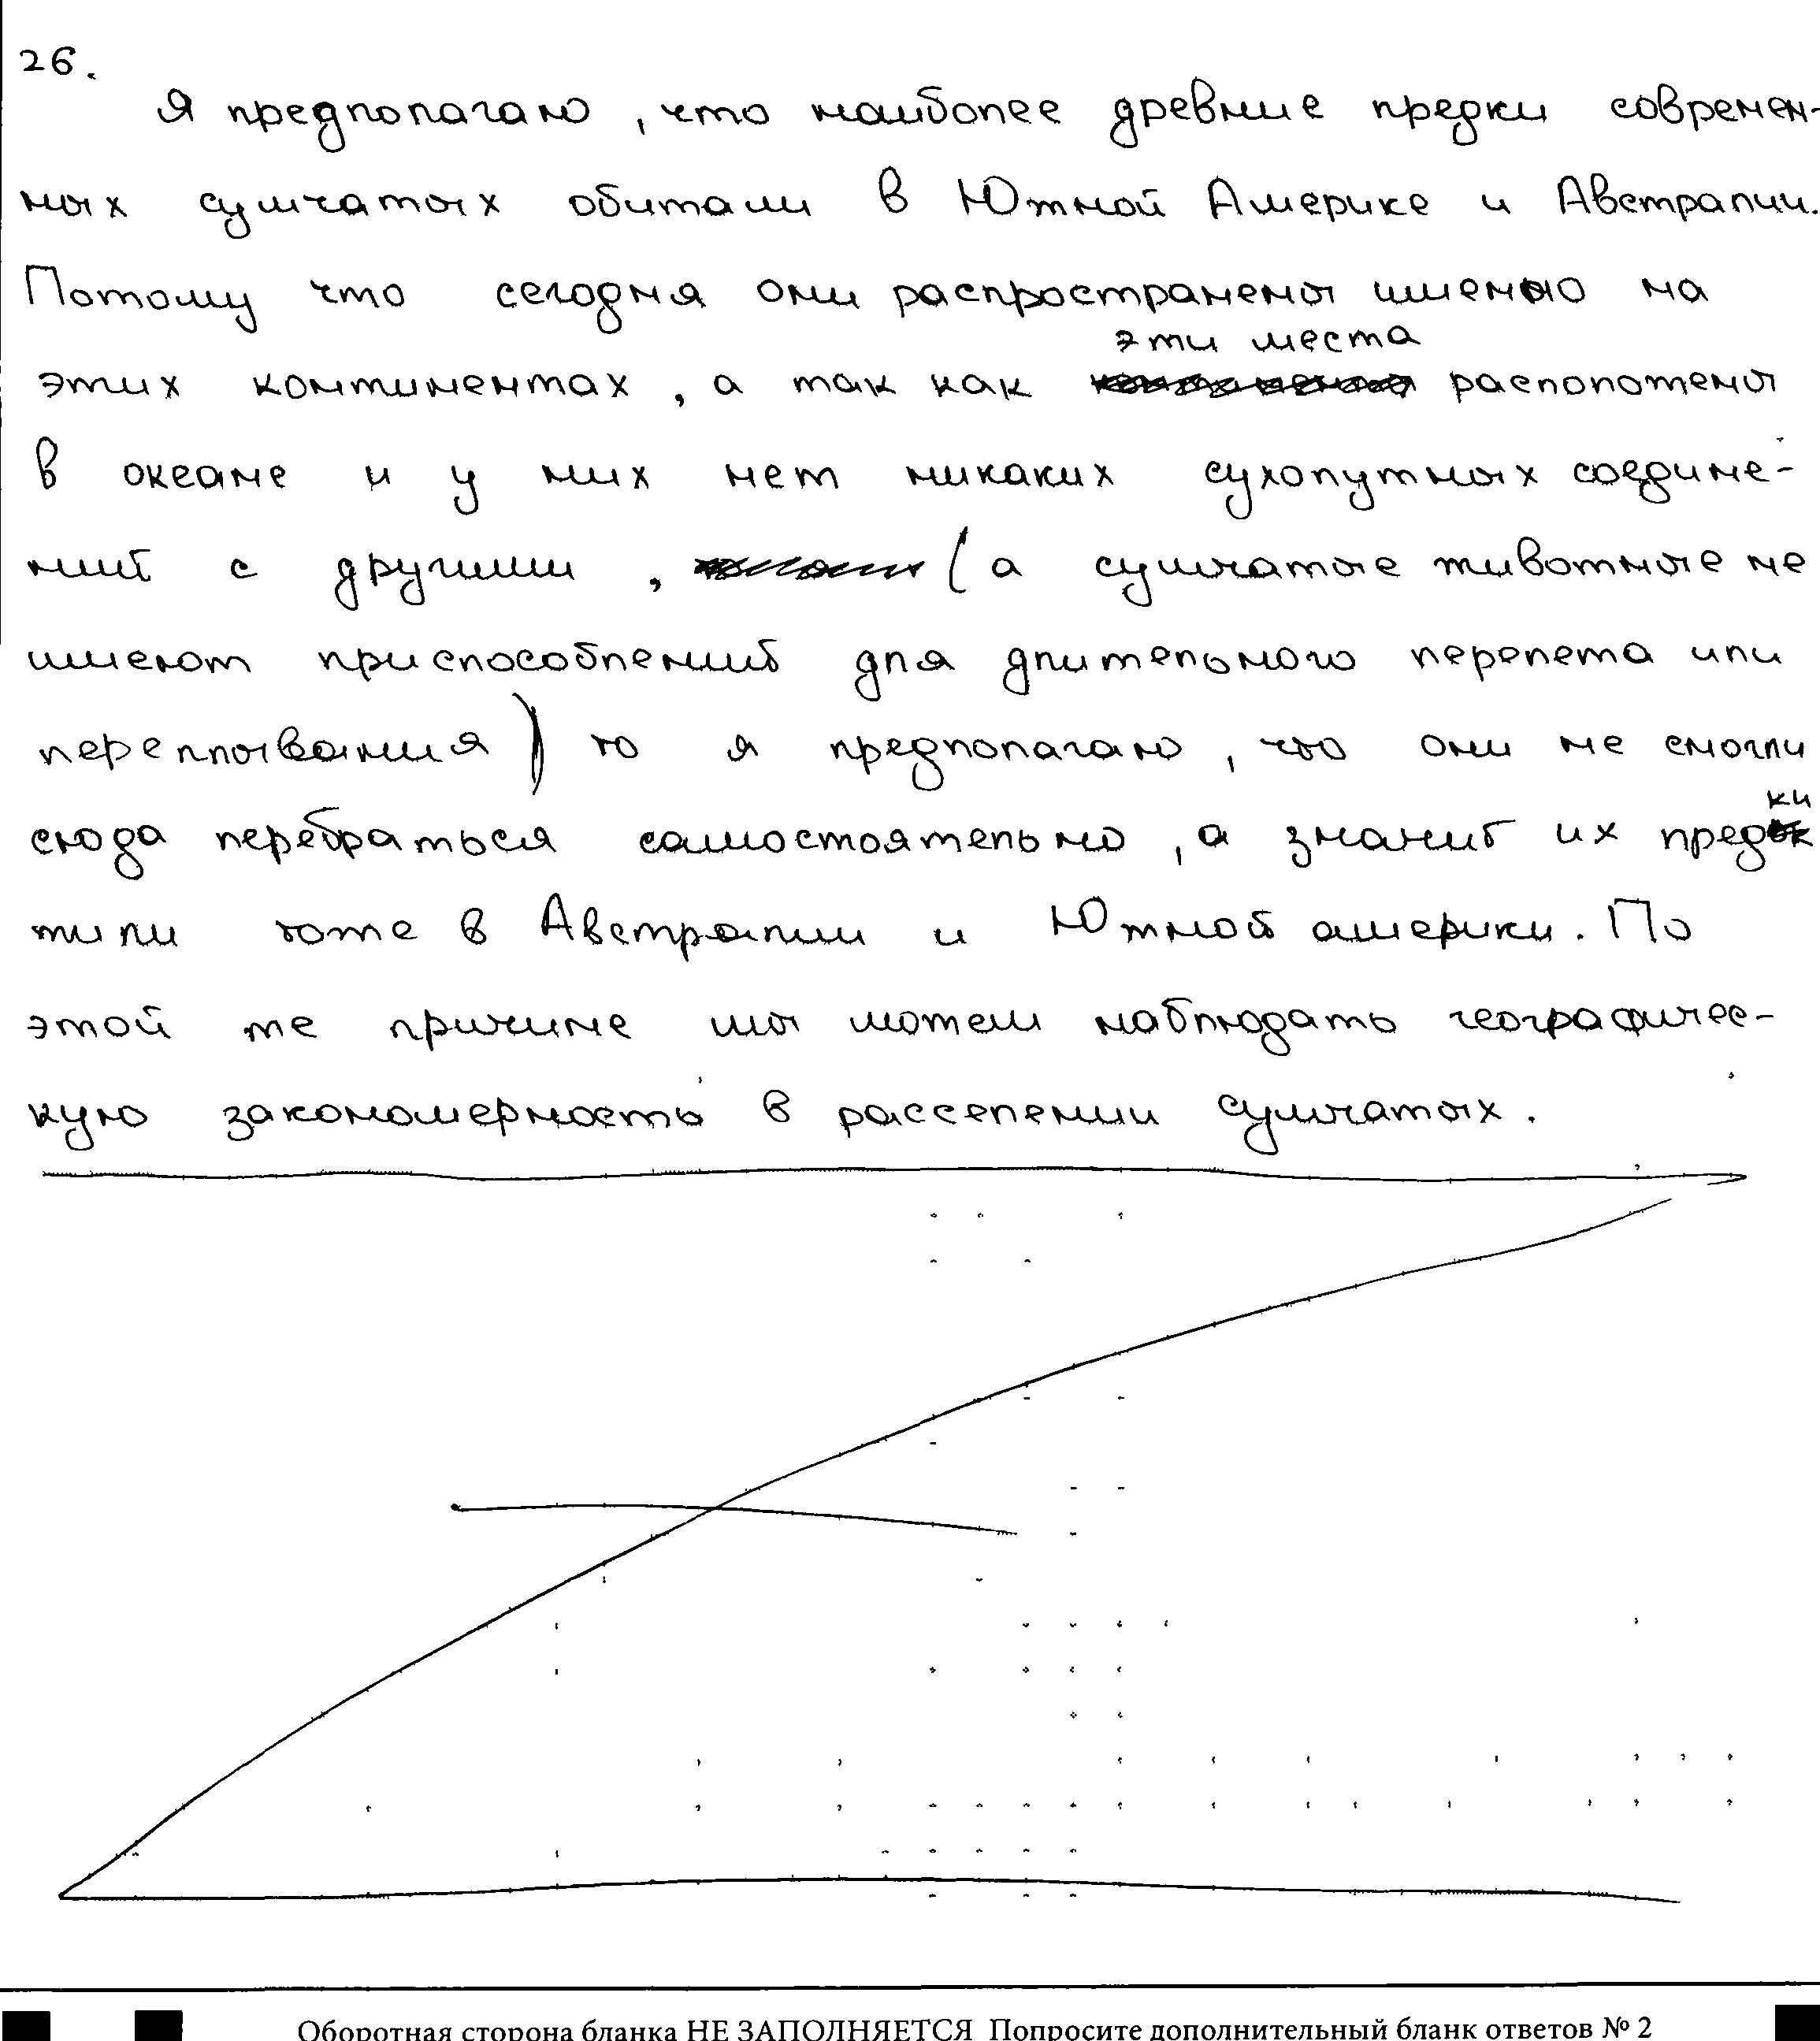 26.
Я предполагаю, что наиболее древние предки современ-
ных сумчатых обитали в Южной Америке и Австралии.
Потому что сегодня они распространены именно на
эти места
этих континентах, а так как расположены
в океане и у них нет никаких сухопутных соедине-
ний с другими, (а сумчатые животные не
имеют приспособлений для длительного перелета или
переплывания) то я предполагаю, что они не смогли
сюда перебраться самостоятельно, а значит их предки
жили тоже в Австралии и Южной америки. По
этой же причине мы можем наблюдать географичес-
кую закономерность в расселении сумчатых.
Оборотная сторона бланка НЕ ЗАПОЛНЯЕТСЯ Попросите дополнительный бланк ответов № 2